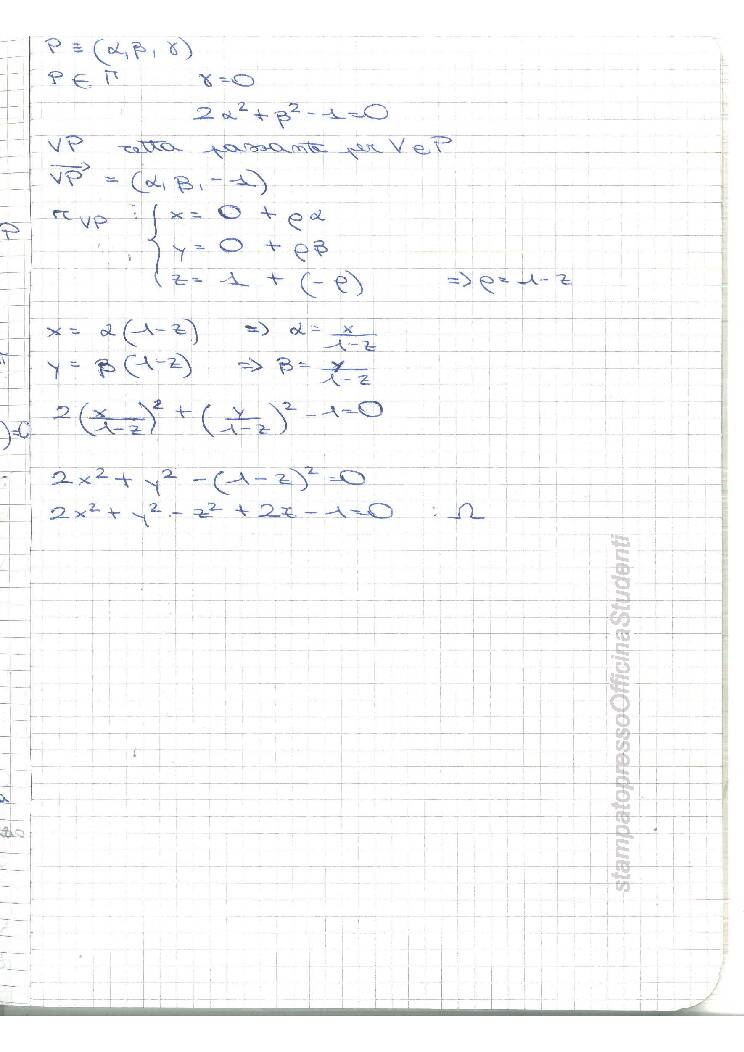 P ≡ (α, β, γ)
P ∈ Γ γ=0
2α² + β² - 1 = 0
VP retta passante per V e P
VP→ = (α, β, -1)
r_VP : { x = 0 + ρα
y = 0 + ρβ
z = 1 + (-ρ) => ρ = 1-z
x = α(1-z) => α = x/(1-z)
y = β(1-z) => β = y/(1-z)
2(x/(1-z))² + (y/(1-z))² - 1 = 0
2x² + y² - (1-z)² = 0
2x² + y² - z² + 2z - 1 = 0 : Ω
stampatopressoOfficinaStudenti